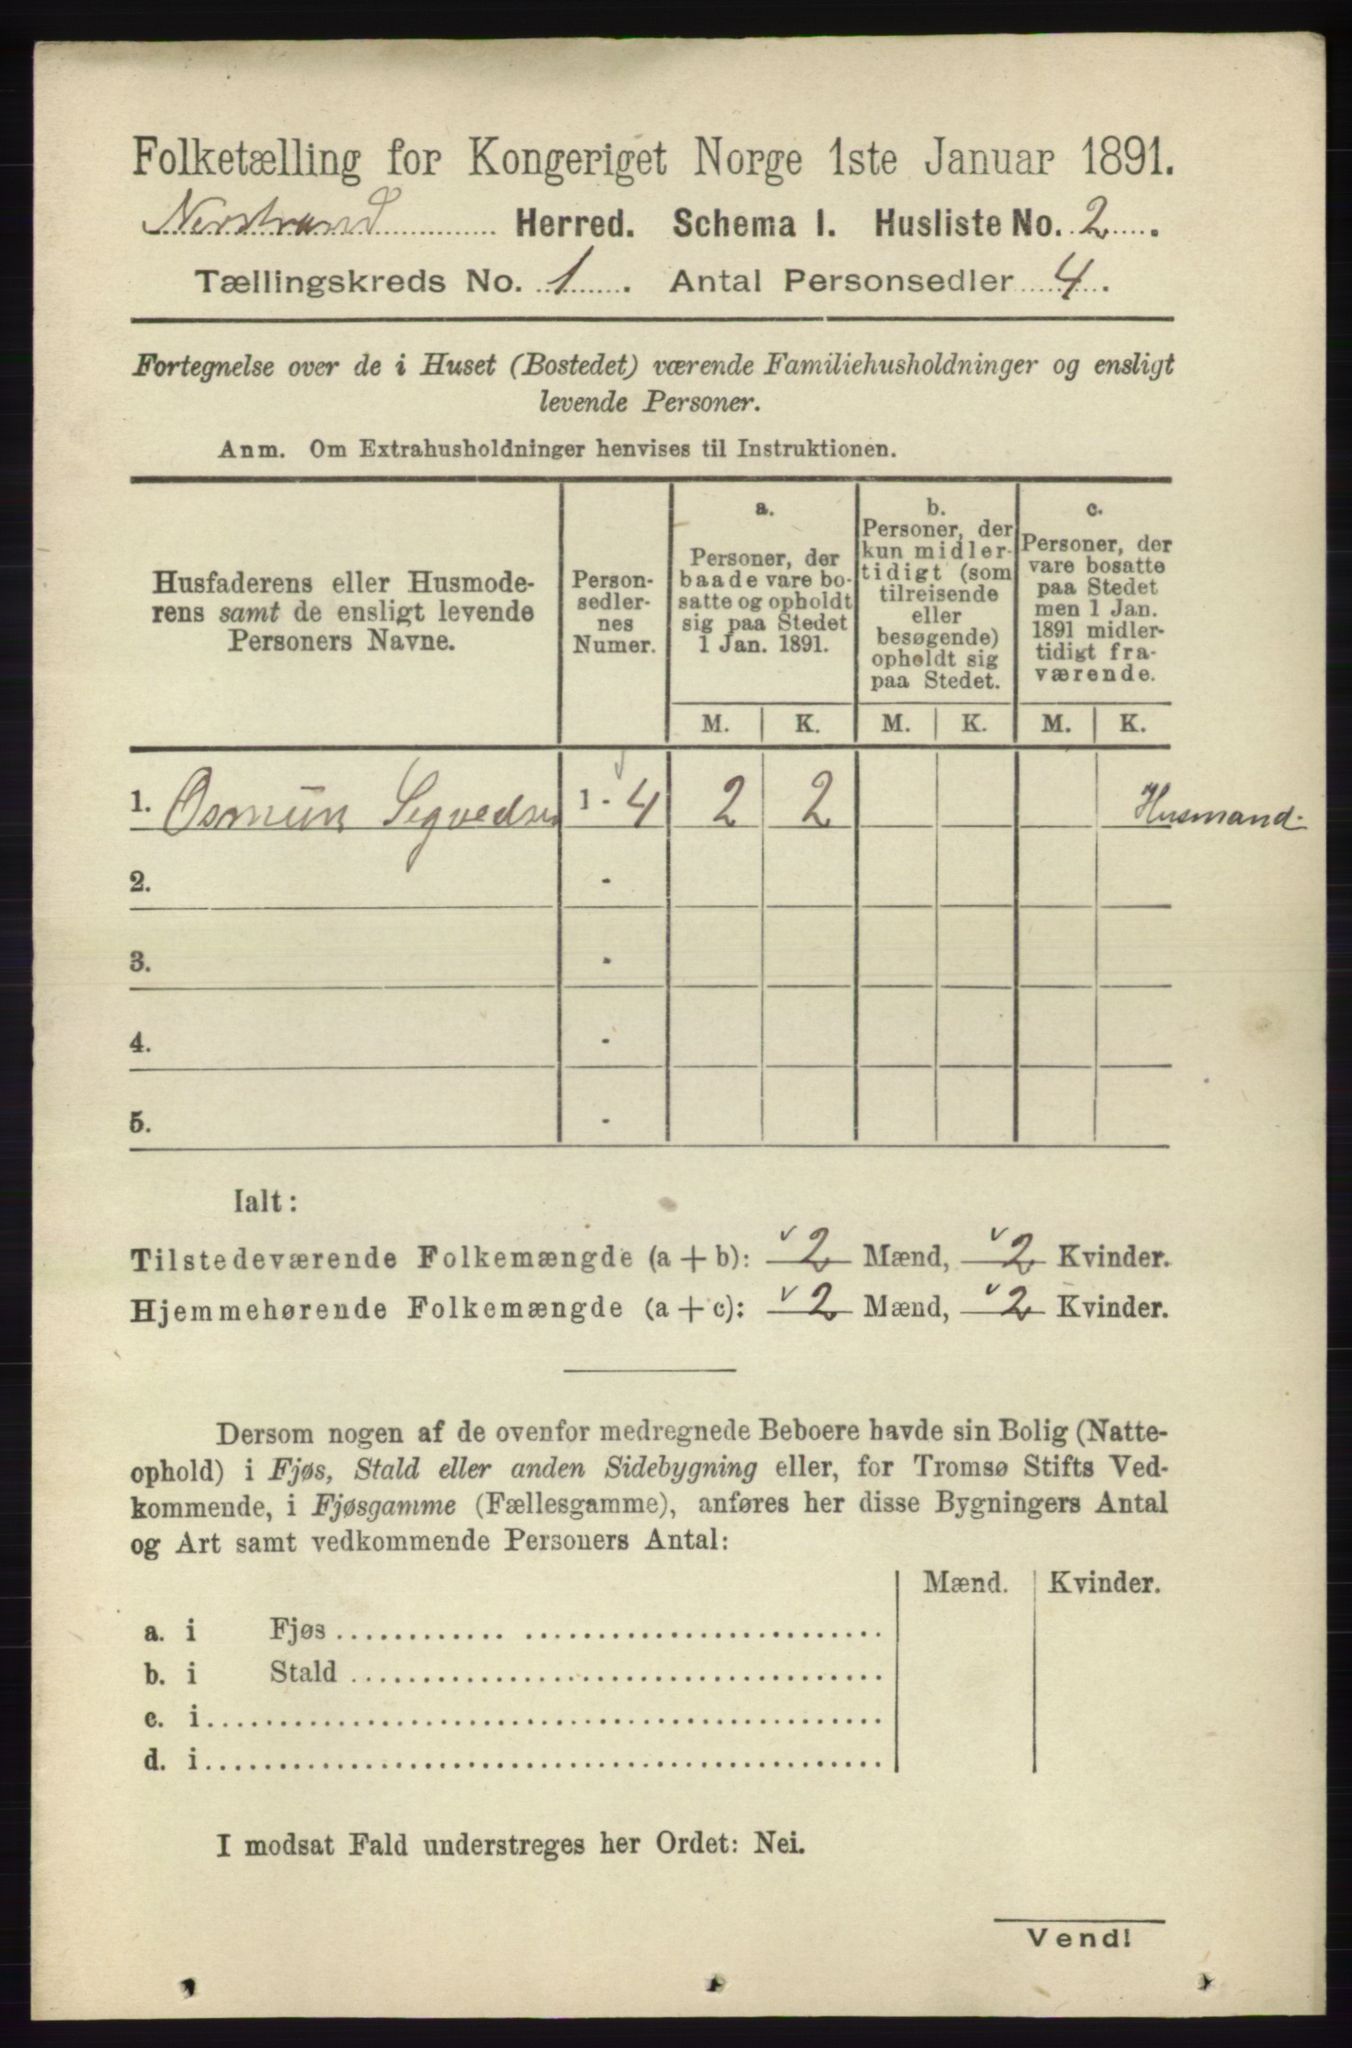 Folketælling for Kongeriget Norge 1ste Januar 1891.
Nerstrand Herred. Schema I. Husliste No. 2.
Tællingskreds No. 1. Antal Personsedler 4.
Fortegnelse over de i Huset (Bostedet) værende Familiehusholdninger og ensligt
levende Personer.
Anm. Om Extrahusholdninger henvises til Instruktionen.
Husfaderens eller Husmode-
rens samt de ensligt levende
Personers Navne.
Person-
sedler-
nes
Numer.
a.
Personer, der
baade vare bo-
satte og opholdt
sig paa Stedet
1 Jan. 1891.
b.
Personer, der
kun midler-
tidigt (som
tilreisende
eller
besøgende)
opholdt sig
paa Stedet.
c.
Personer, der
vare bosatte
paa Stedet
men 1 Jan.
1891 midler-
tidigt fra-
værende.
M. K. M. K. M. K.
1. Osmun Sigvedsen 1 - 4 2 2 Husmand.
2. -
3. -
4. -
5. -
Ialt:
Tilstedeværende Folkemængde (a + b): 2 Mænd, 2 Kvinder.
Hjemmehørende Folkemængde (a + c): 2 Mænd, 2 Kvinder.
Dersom nogen af de ovenfor medregnede Beboere havde sin Bolig (Natte-
ophold) i Fjøs, Stald eller anden Sidebygning eller, for Tromsø Stifts Ved-
kommende, i Fjøsgamme (Fællesgamme), anføres her disse Bygningers Antal
og Art samt vedkommende Personers Antal:
Mænd. Kvinder.
a. i Fjøs
b. i Stald
c. i
d. i
I modsat Fald understreges her Ordet: Nei.
Vend!